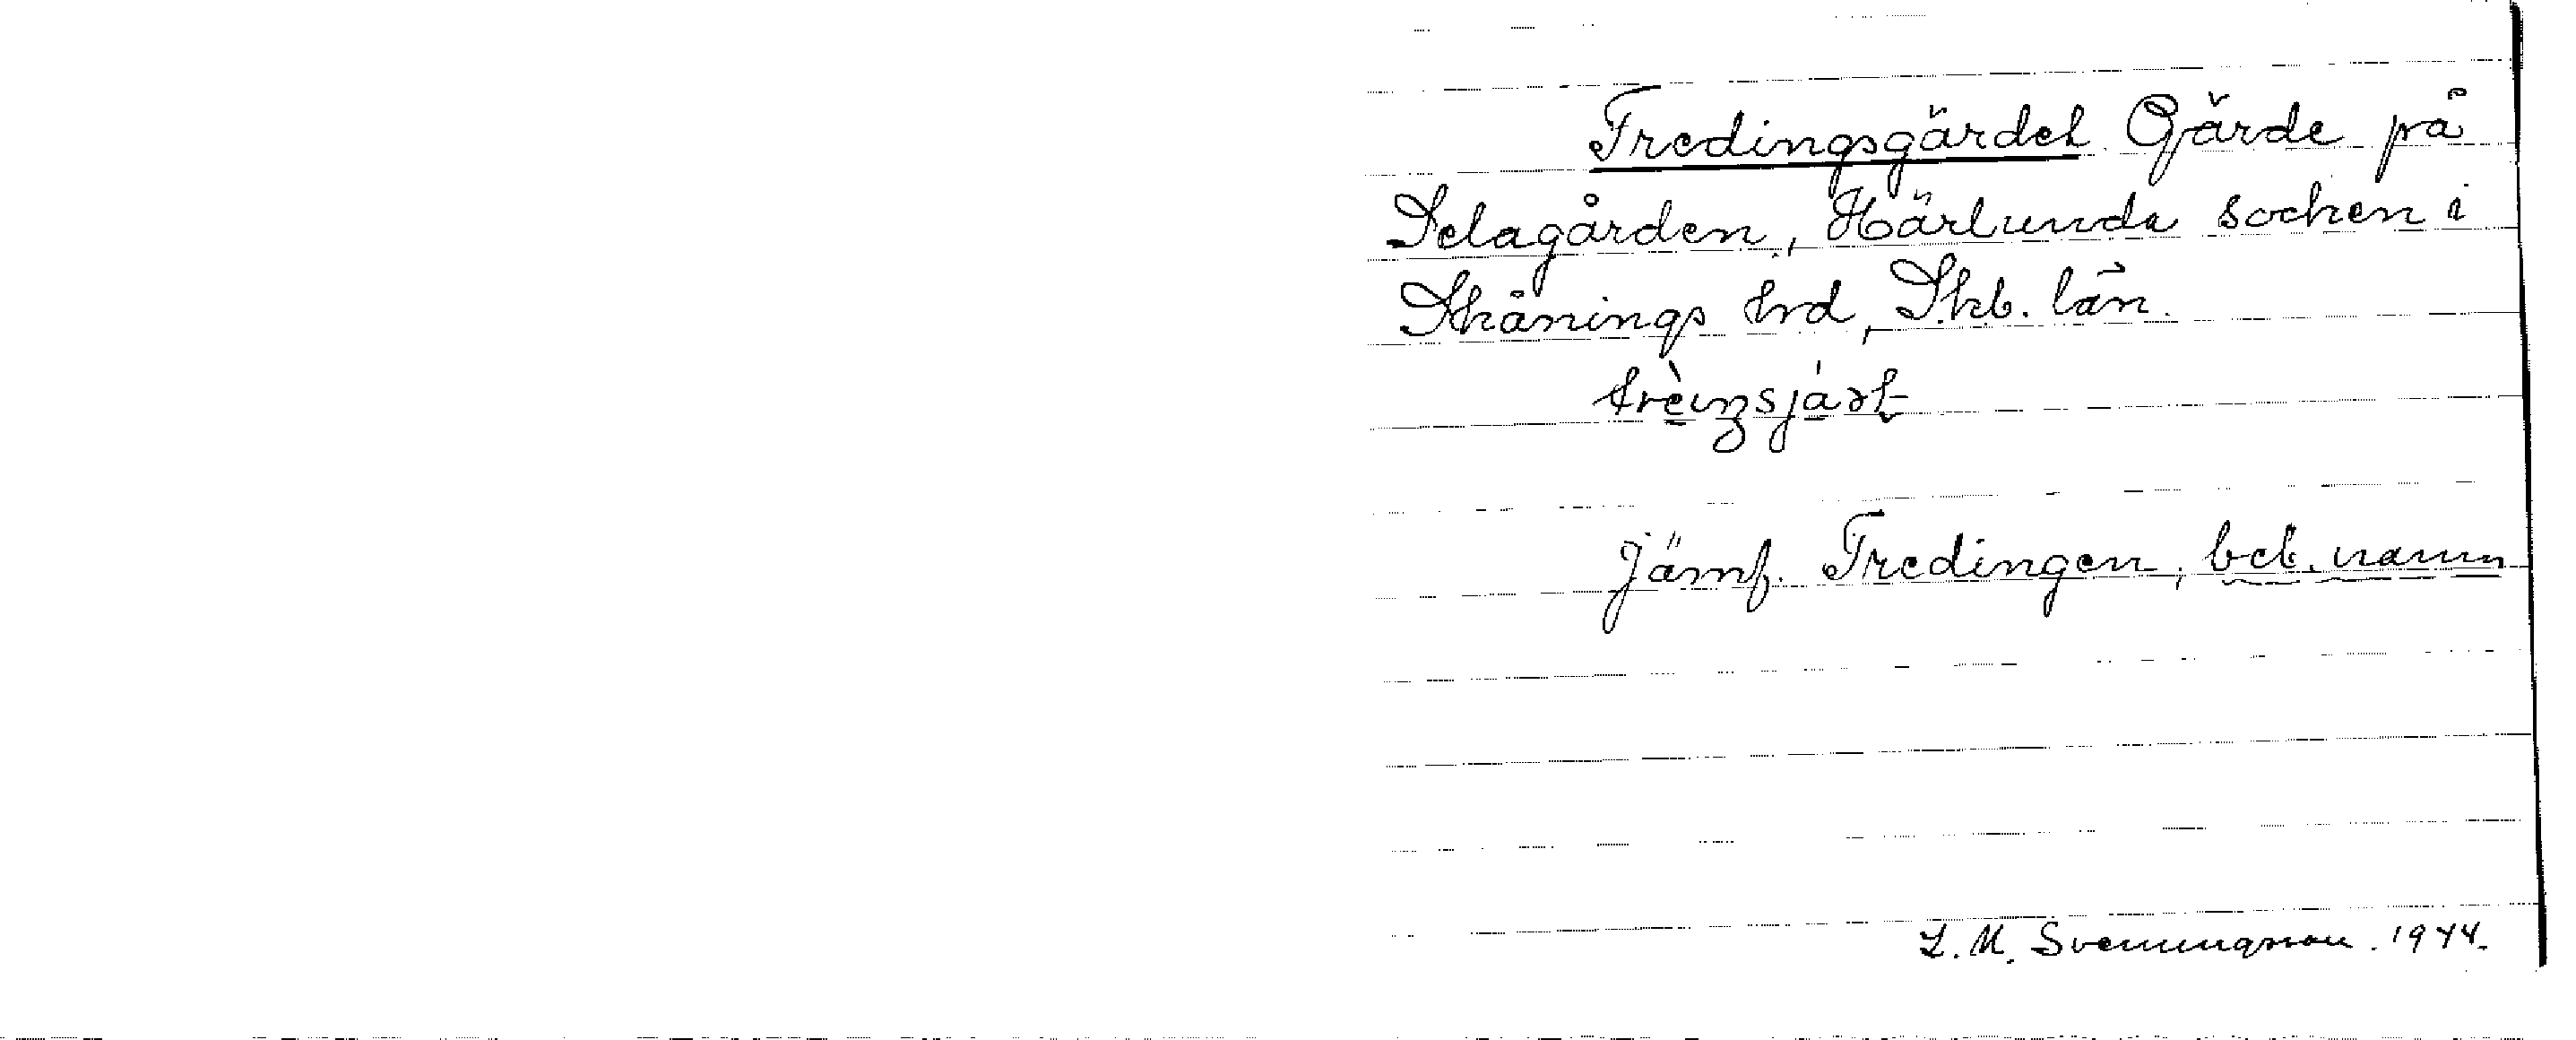 Tredingsgärdet. Gärde på
Selagården, Härlunda socken i
Skånings hrd, Skb. län.
Jämf. Tredingen, beb. namn
L. M. Svenungsson. 1944.